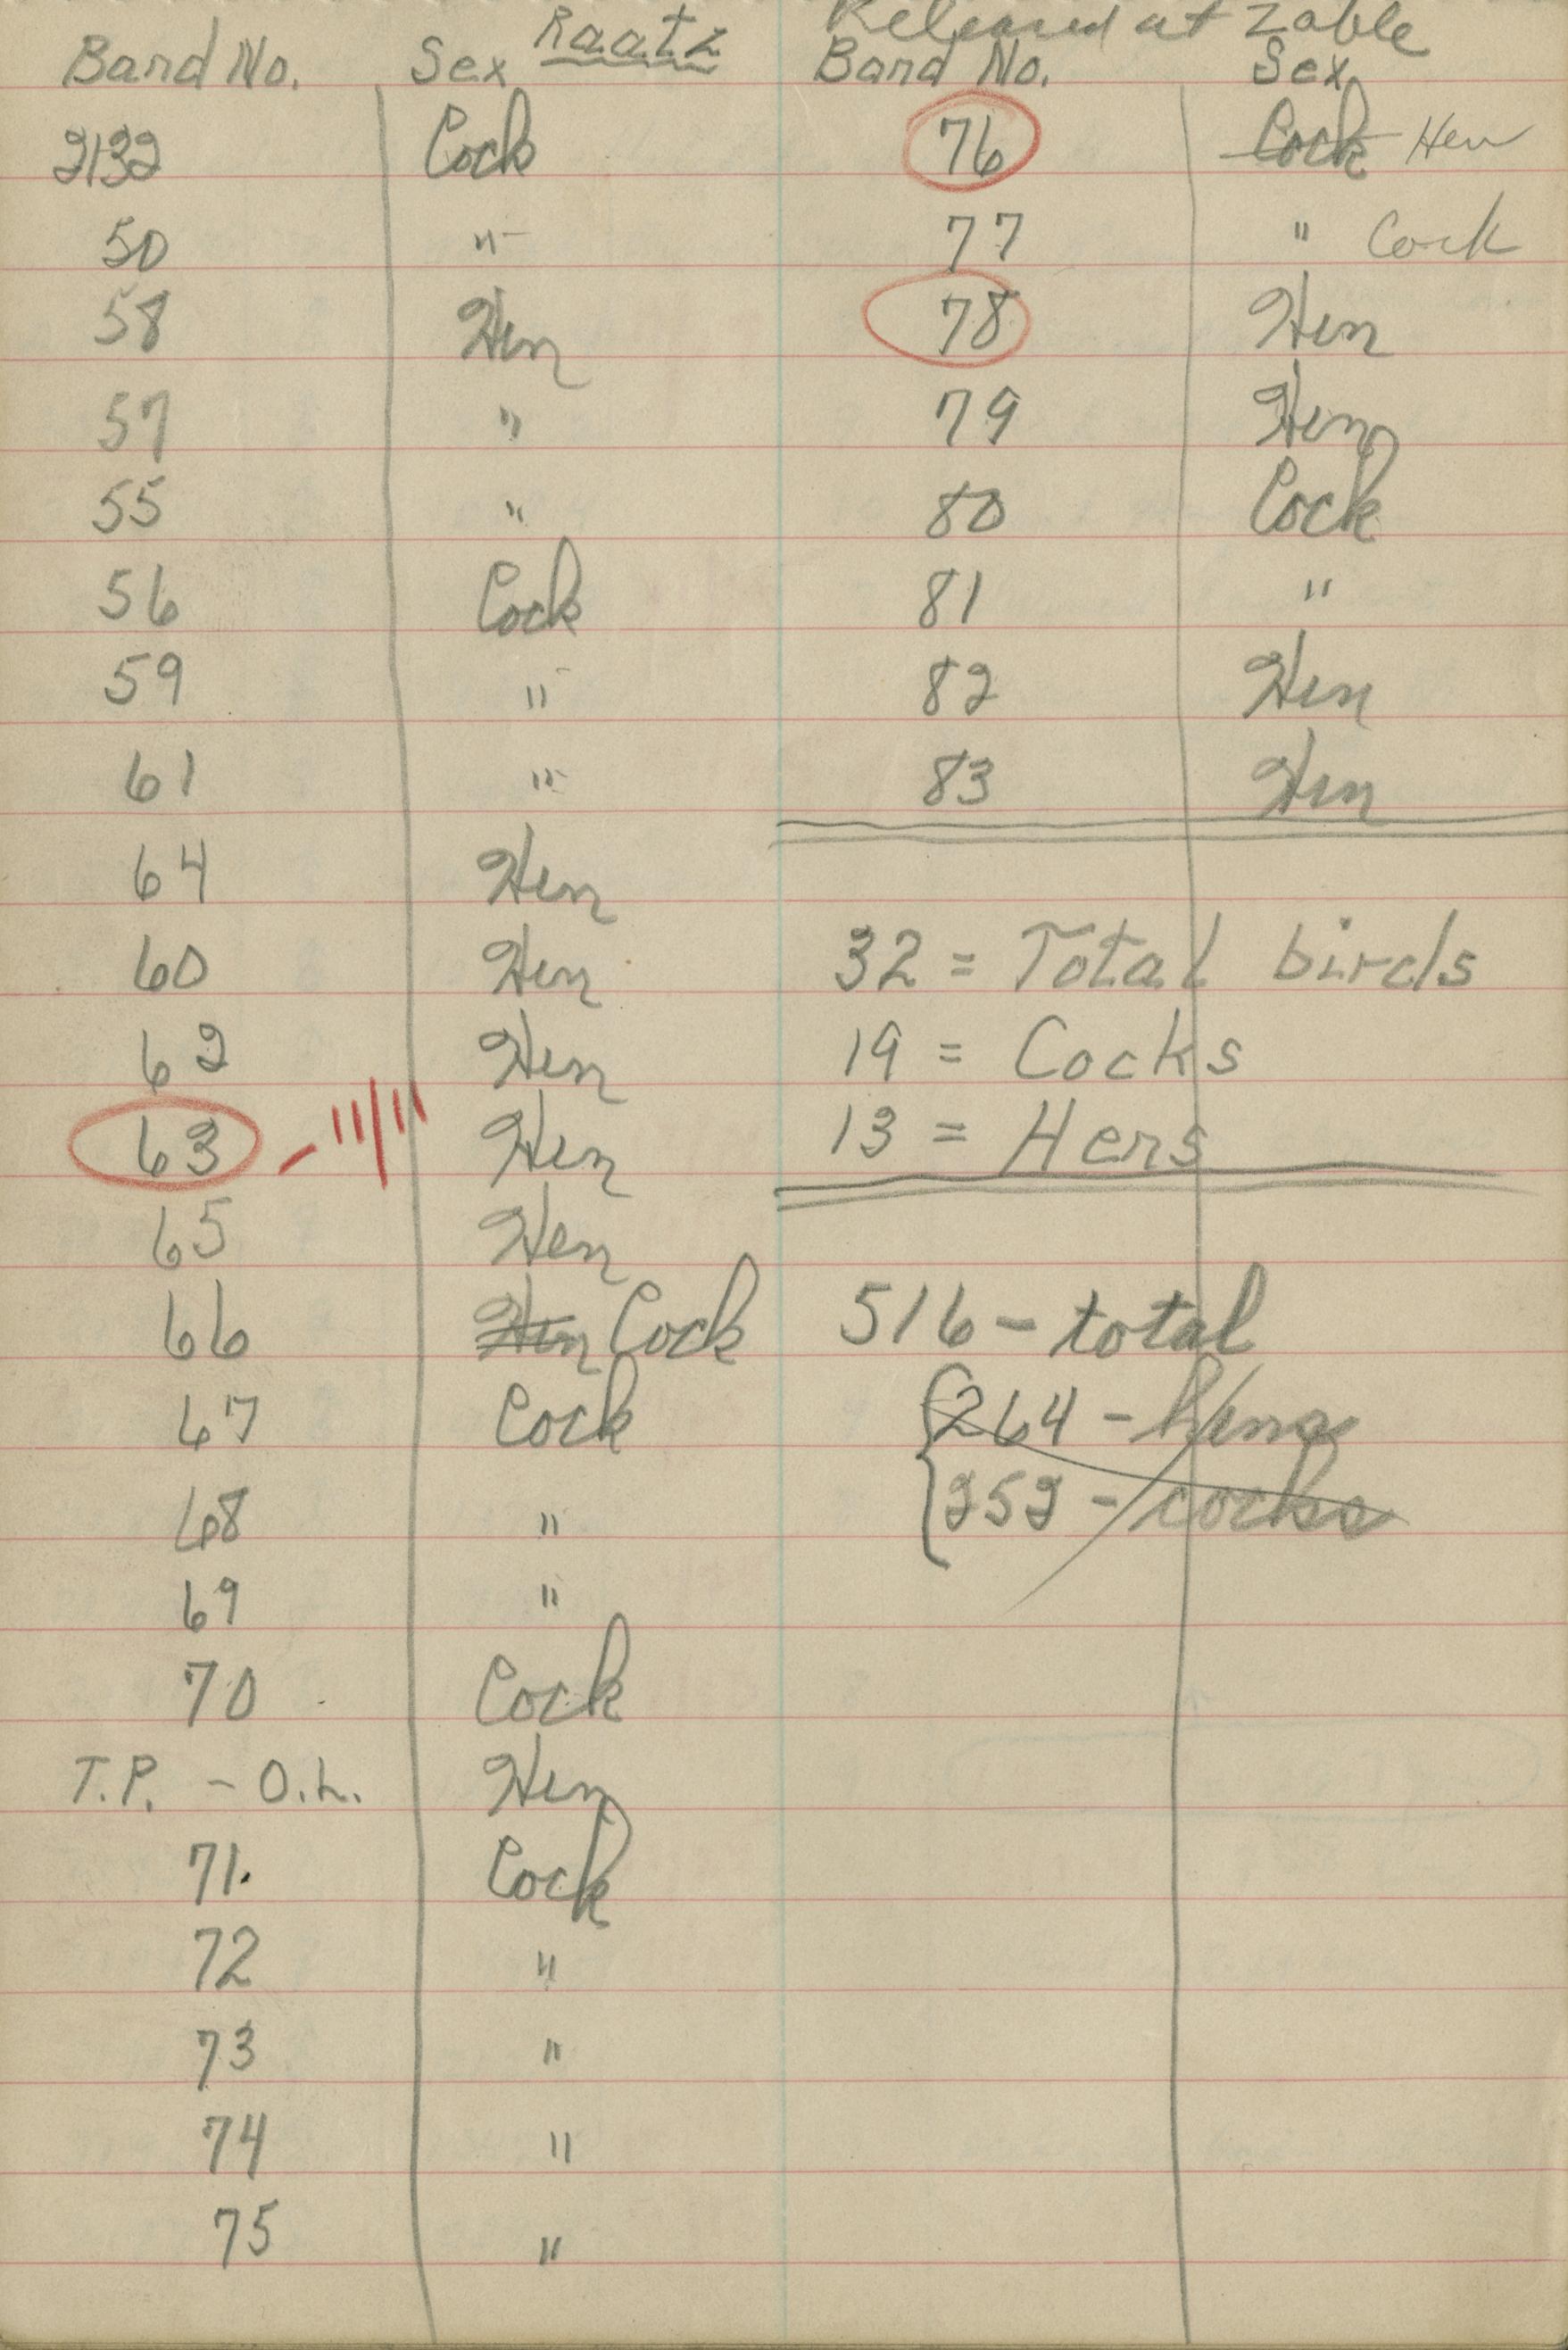 Raatz
Band No. Sex
2132 Cock
50 "
58 Hen
57 "
55 "
56 Cock
59 "
61 "
64 Hen
60 Hen
62 Hen
63 Hen
65 Hen
66 Hen Cock
67 Cock
68 "
69 "
70 Cock
T.P. - O.L. Hen
71. Cock
72 "
73 "
74 "
75 "
Released at Zable
Band No. Sex
76 Cock Hen
77 " Cock
78 Hen
79 Hen
80 Cock
81 "
82 Hen
83 Hen
32 = Total birds
19 = Cocks
13 = Hens
516 - total
264 - hens
252 - cocks